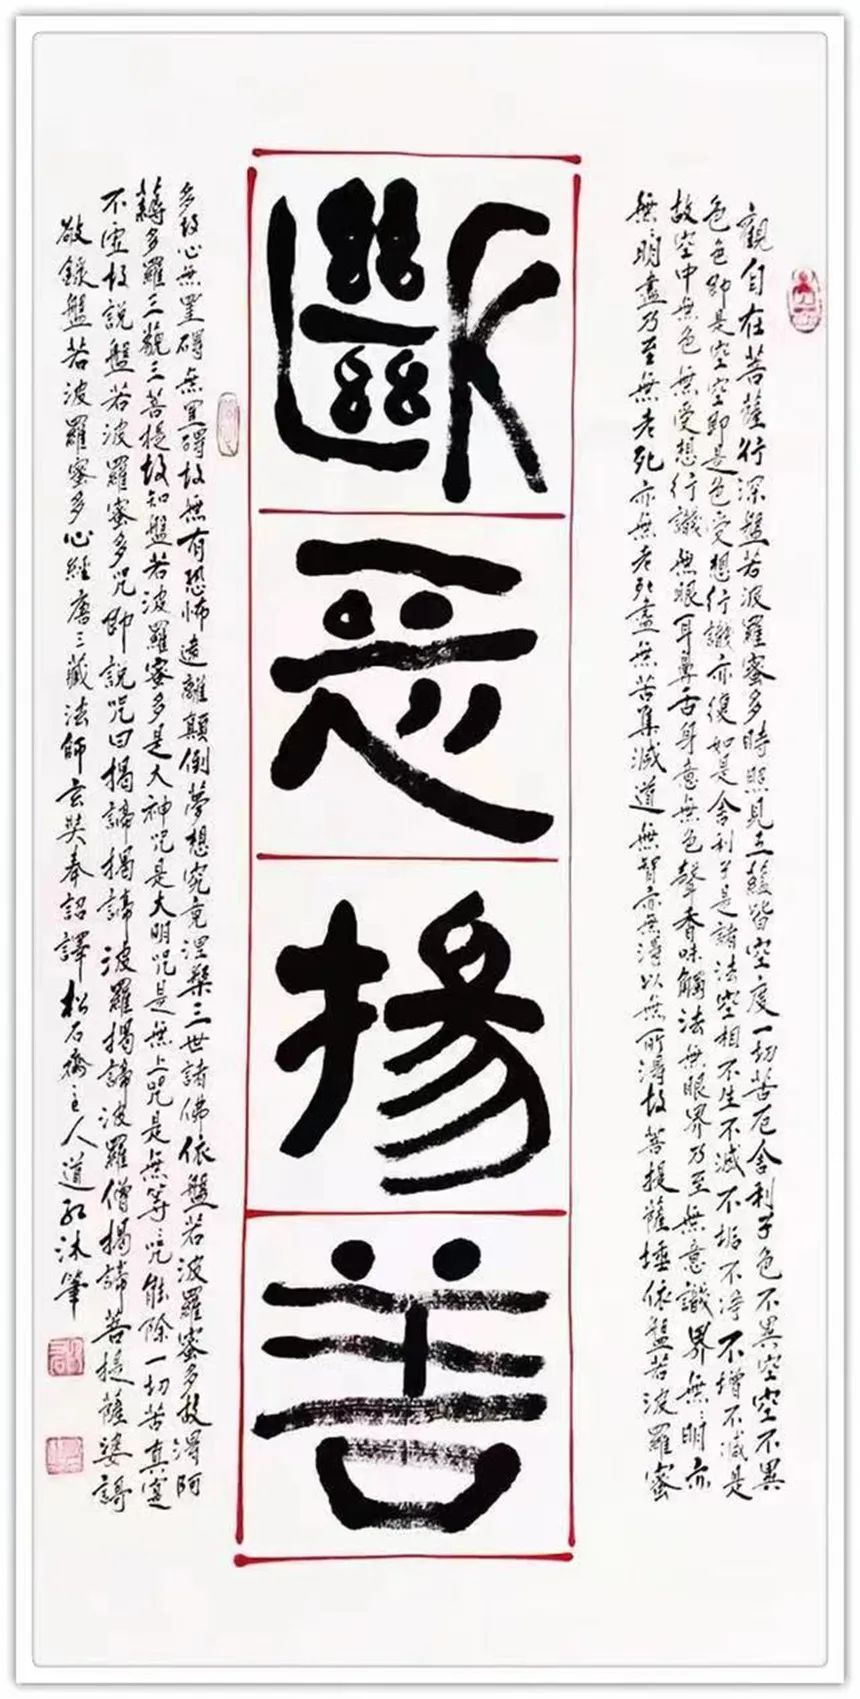 觀自在菩薩行深盤若波羅蜜多時照見五蘊皆空度一切苦厄舍利子色不異空空不異
色色即是空空即是色受想行識亦復如是舍利子是諸法空相不生不滅不垢不淨不增不減是
故空中無色無受想行識無眼耳鼻舌身意無色聲香味觸法無眼界乃至無意識界無無明亦
無無明盡乃至無老死亦無老死盡無苦集滅道無智亦無得以無所得故菩提薩埵依盤若波羅蜜
斷恶揚善
多故心無罣礙無罣礙故無有恐怖遠離顛倒夢想究竟涅槃三世諸佛依盤若波羅蜜多故得阿
耨多羅三藐三菩提故知盤若波羅蜜多是大神咒是大明咒是無上咒是無等等咒能除一切苦真實
不虛故說盤若波羅蜜多咒即說咒曰揭諦揭諦波羅揭諦波羅僧揭諦菩提薩婆訶
敬錄盤若波羅蜜多心經唐三藏法師玄奘奉詔譯松石齋主人道沐筆